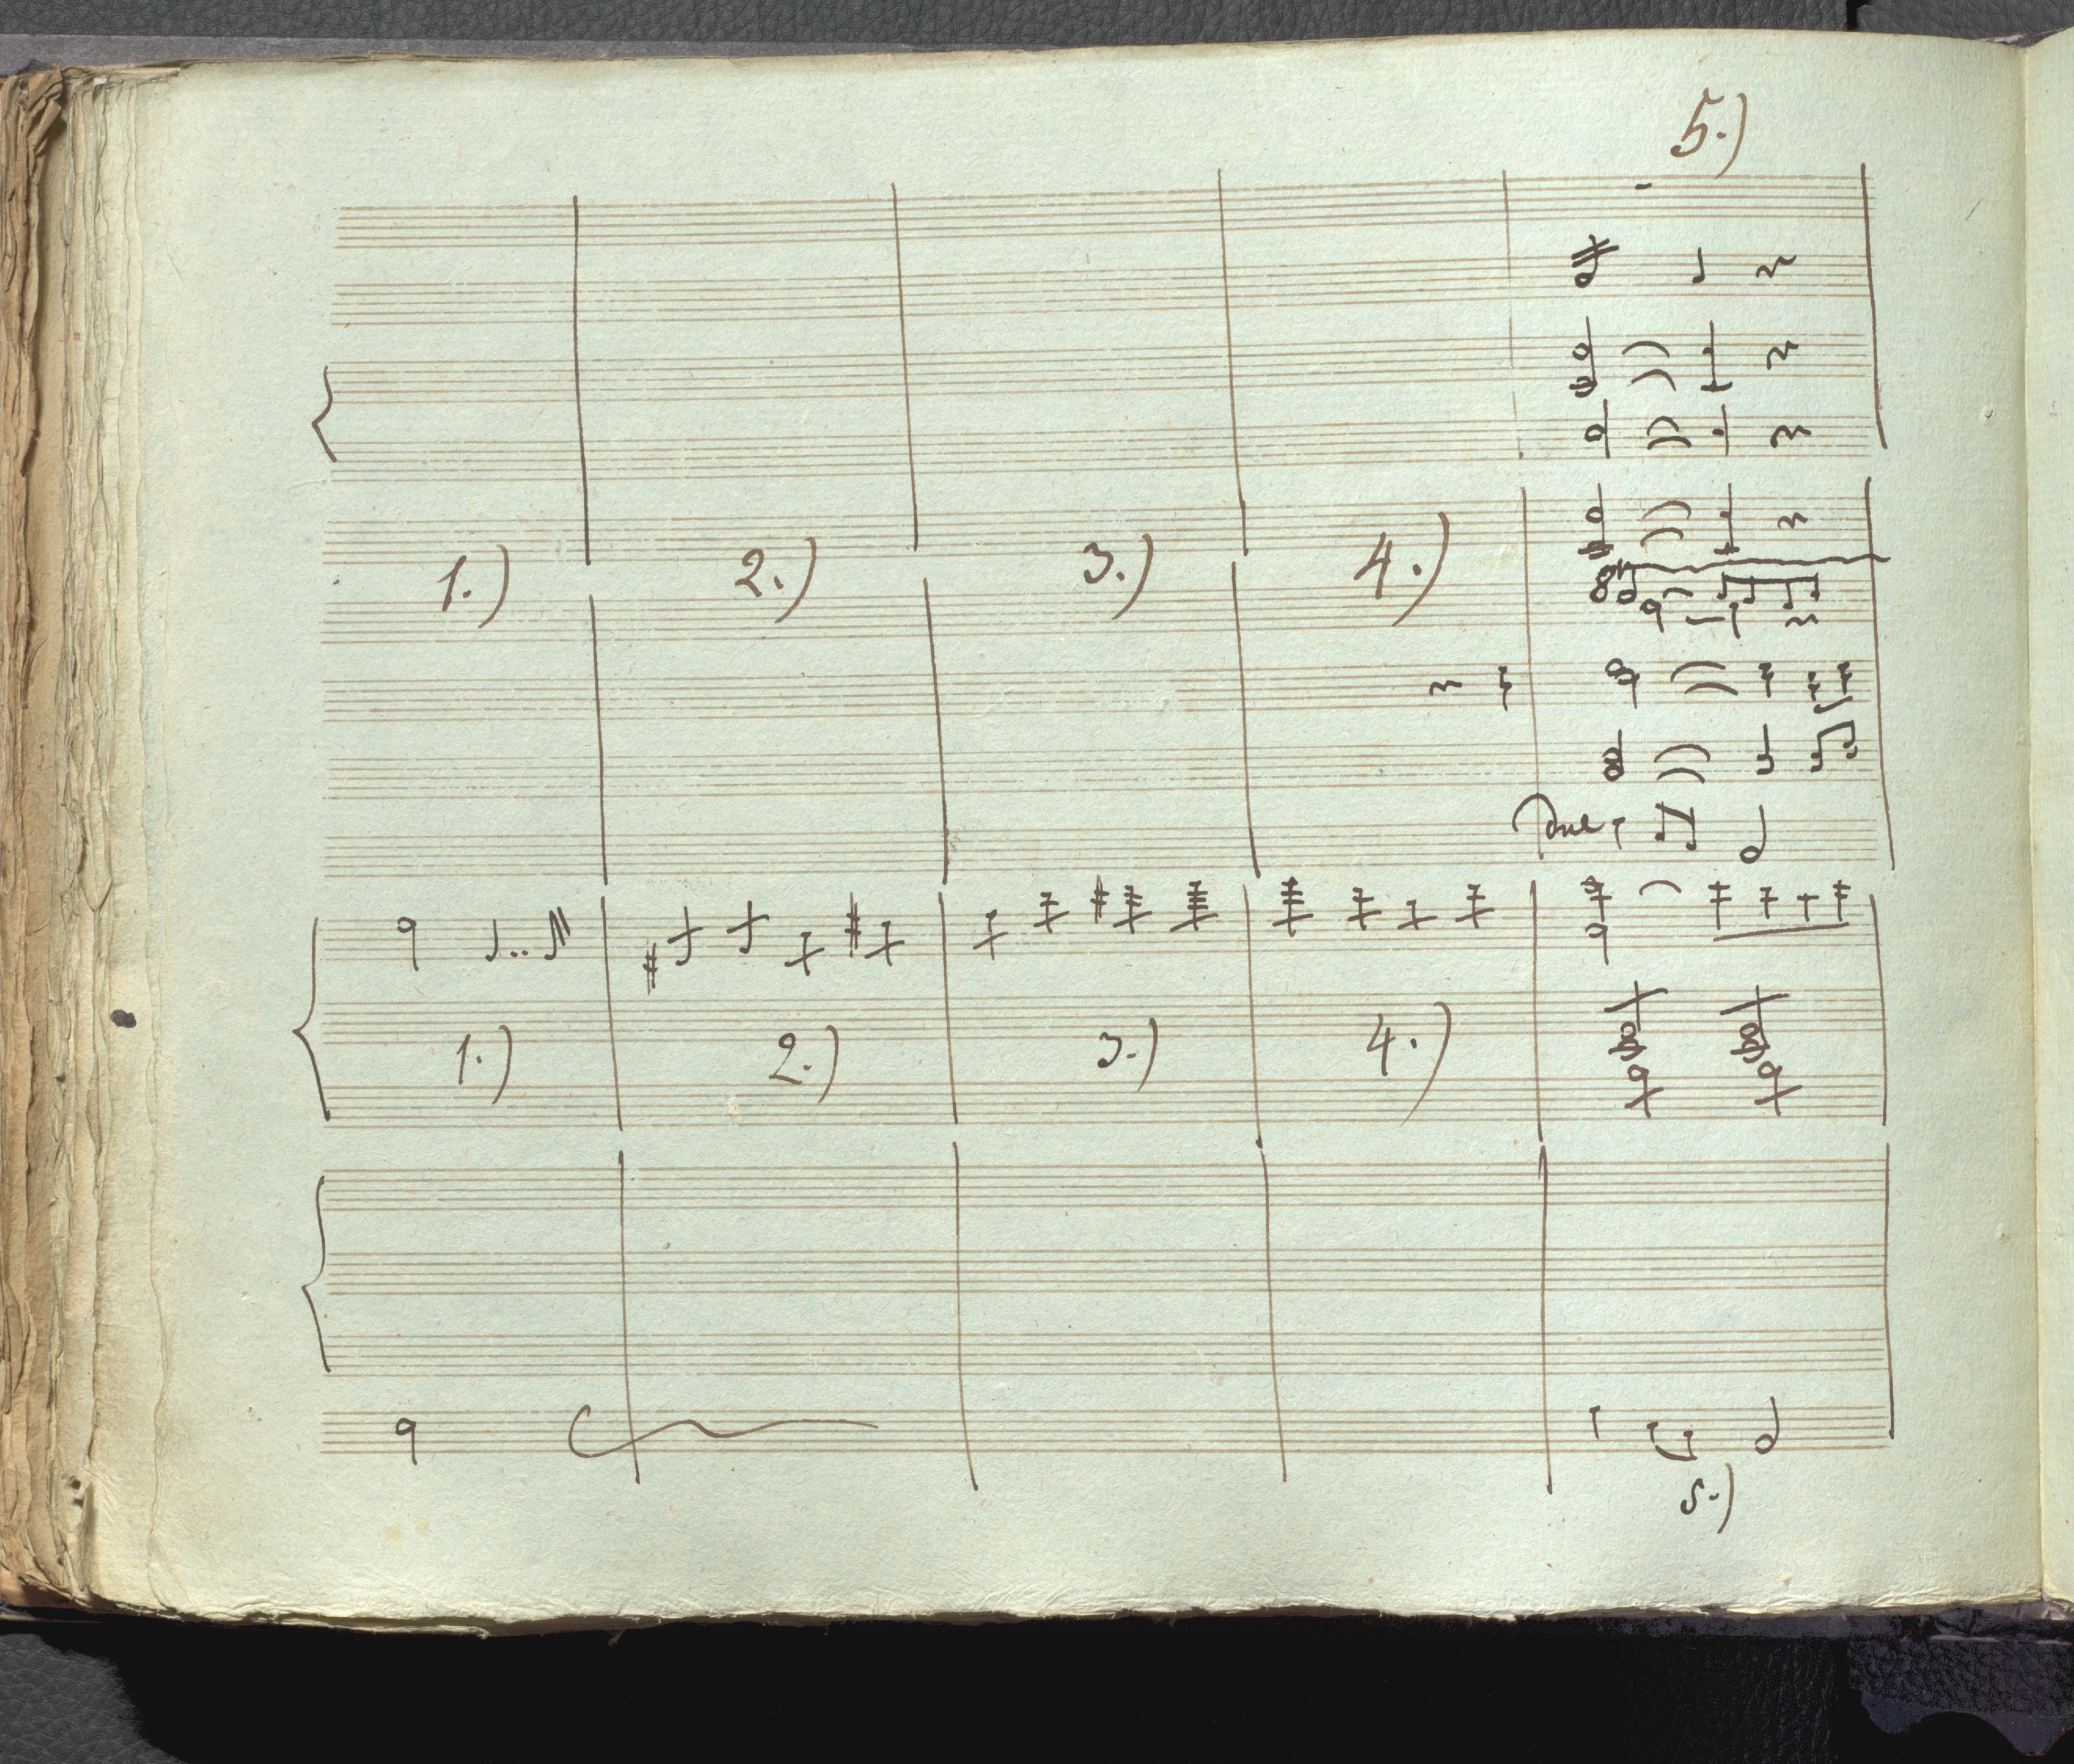 5.)
1.) 2.) 3.) 4.)
8
1.) 2.) 3.) 4.)
5.)